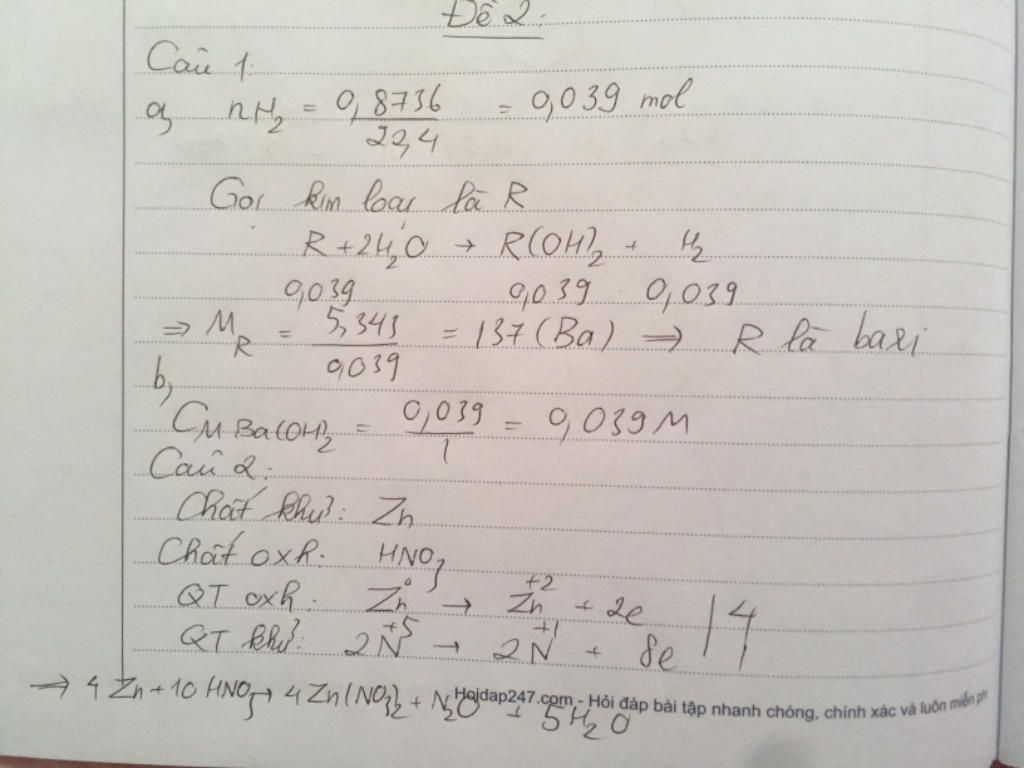 Đề 2:
Câu 1:
a, nH2 = 0,8736 / 22,4 = 0,039 mol
Gọi kim loại là R
R + 2H2O → R(OH)2 + H2
0,039 0,039 0,039
⇒ MR = 5,343 / 0,039 = 137 (Ba) ⇒ R là bari
b,
CM Ba(OH)2 = 0,039 / 1 = 0,039M
Câu 2:
Chất khử: Zn
Chất oxh: HNO3
QT oxh: Zn⁰ → Zn⁺² + 2e | 4
QT khử: 2N⁺⁵ → 2N⁺¹ + 8e | 1
⇒ 4Zn + 10HNO3 → 4Zn(NO3)2 + N2O + 5H2O
Hoidap247.com - Hỏi đáp bài tập nhanh chóng, chính xác và luôn miễn phí